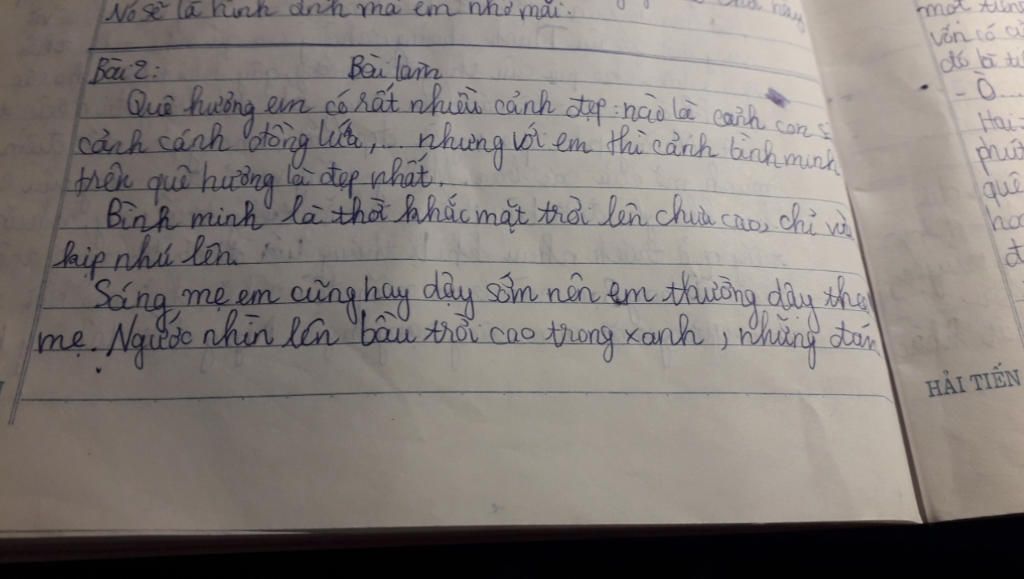 Nó sẽ là hình ảnh mà em nhớ mãi.
Bài 2: Bài làm
Quê hương em có rất nhiều cảnh đẹp: nào là cảnh con s
cảnh cánh đồng lúa,... nhưng với em thì cảnh bình minh
trên quê hương là đẹp nhất.
Bình minh là thời khắc mặt trời lên chưa cao, chỉ vừ
kịp nhú lên.
Sáng mẹ em cũng hay dậy sớm nên em thường dậy the
mẹ. Ngước nhìn lên bầu trời cao trong xanh, những đám
một
vốn có
đó là
- Ò...
Hai
phút
quê
HẢI TIẾN